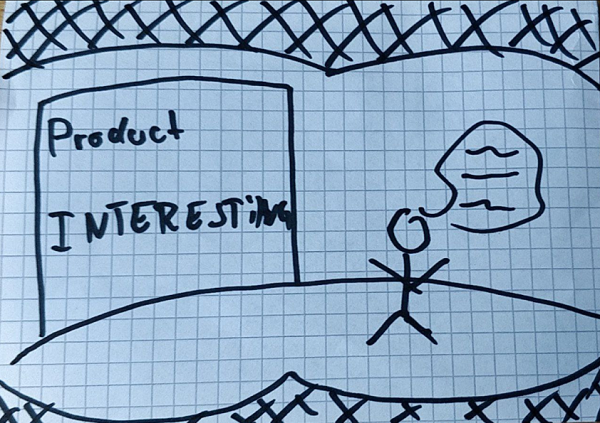 Product
INTERESTiNG